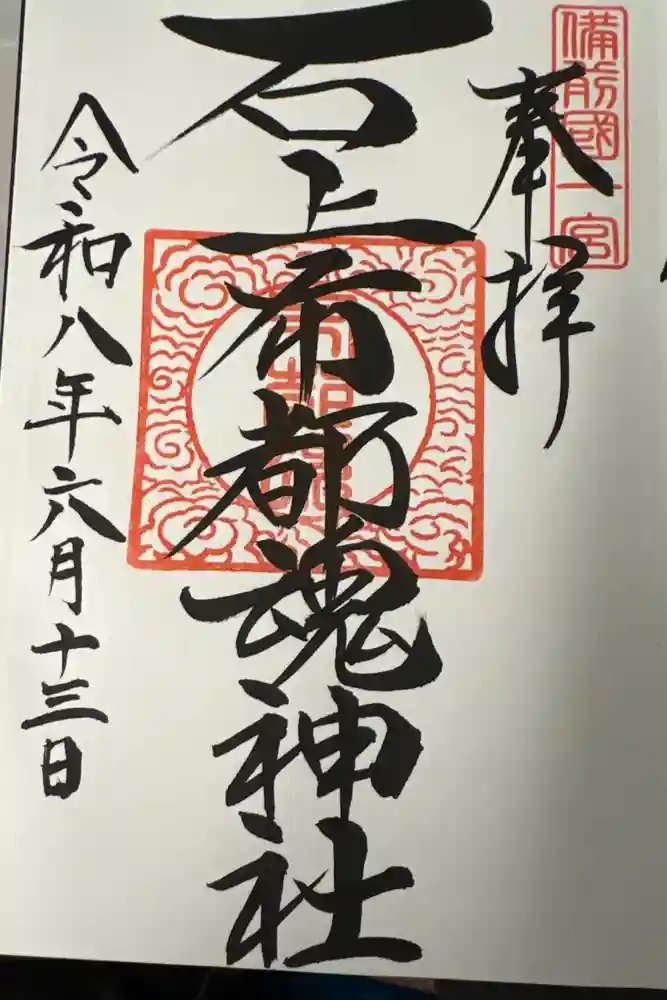 備前國一宮
奉拝
石上布都魂神社
令和八年六月十三日